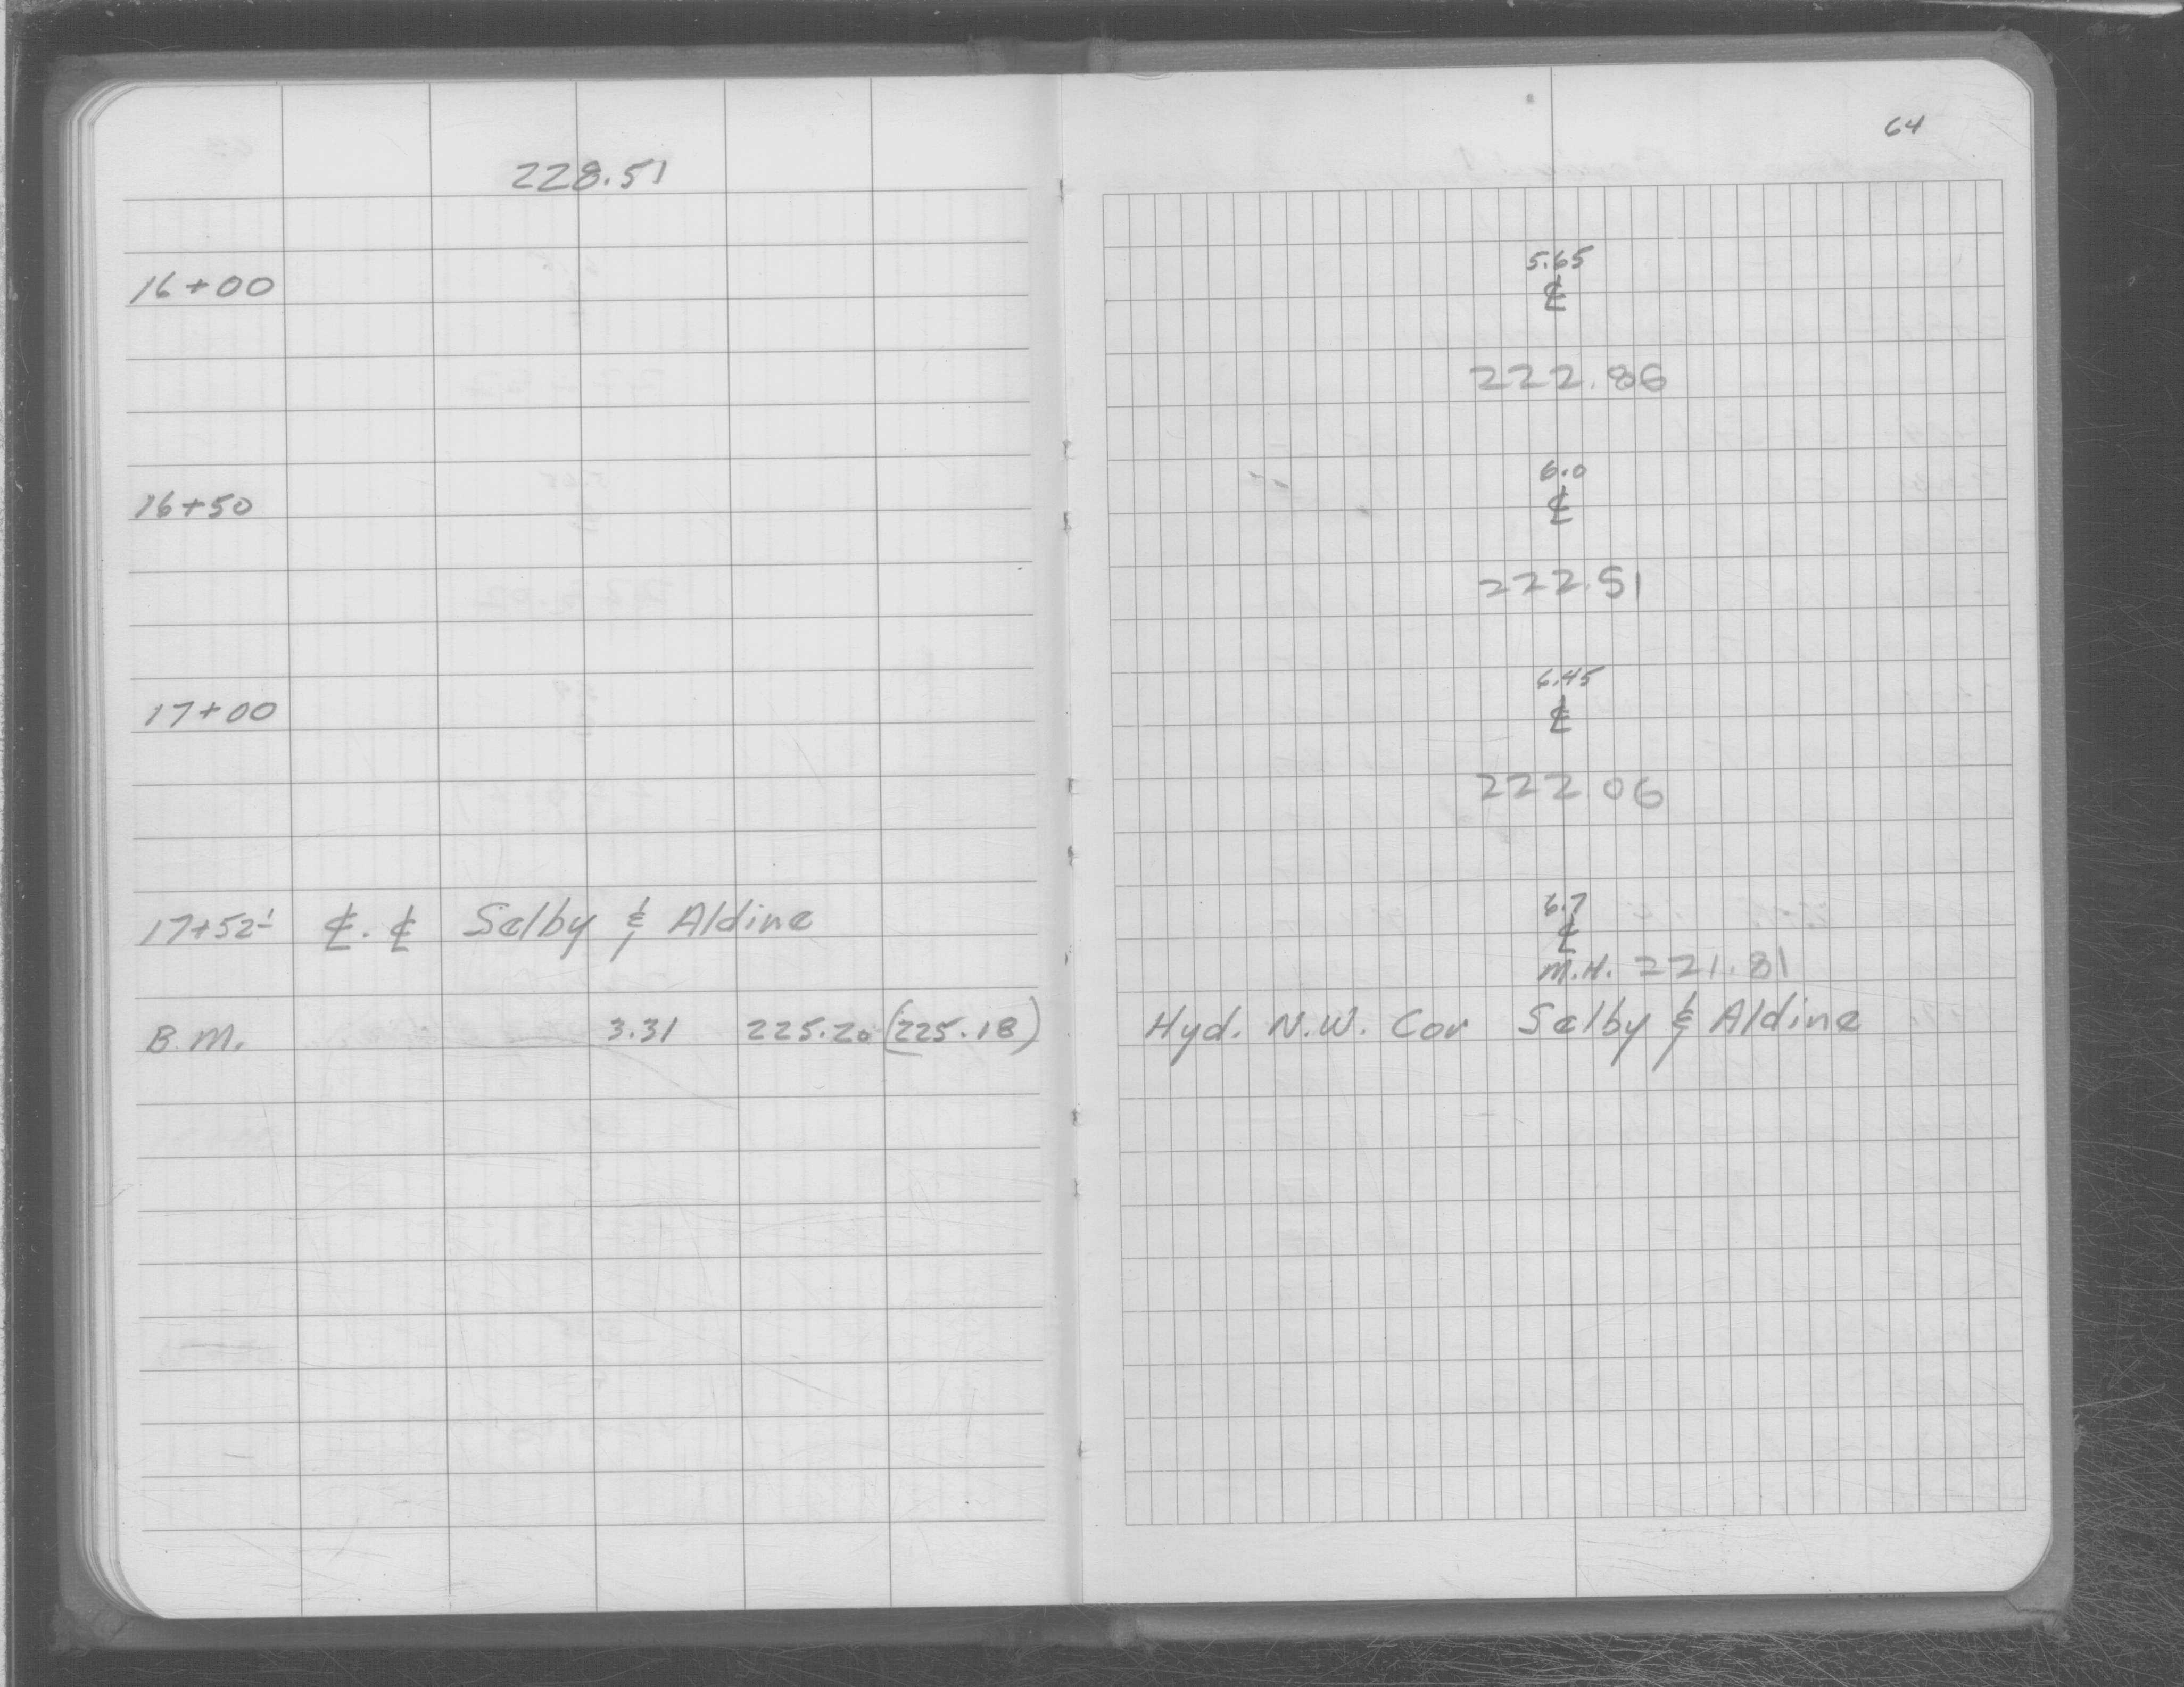 64
228.51
5.65
16+00 ℄
222.86
6.0
16+50 ℄
222.51
6.45
17+00 ℄
222.06
6.7
17+52± ℄. ℄ Selby & Aldine ℄
M.H. 221.81
B.M. 3.31 225.20 (225.18) Hyd. N.W. Cor Selby & Aldine